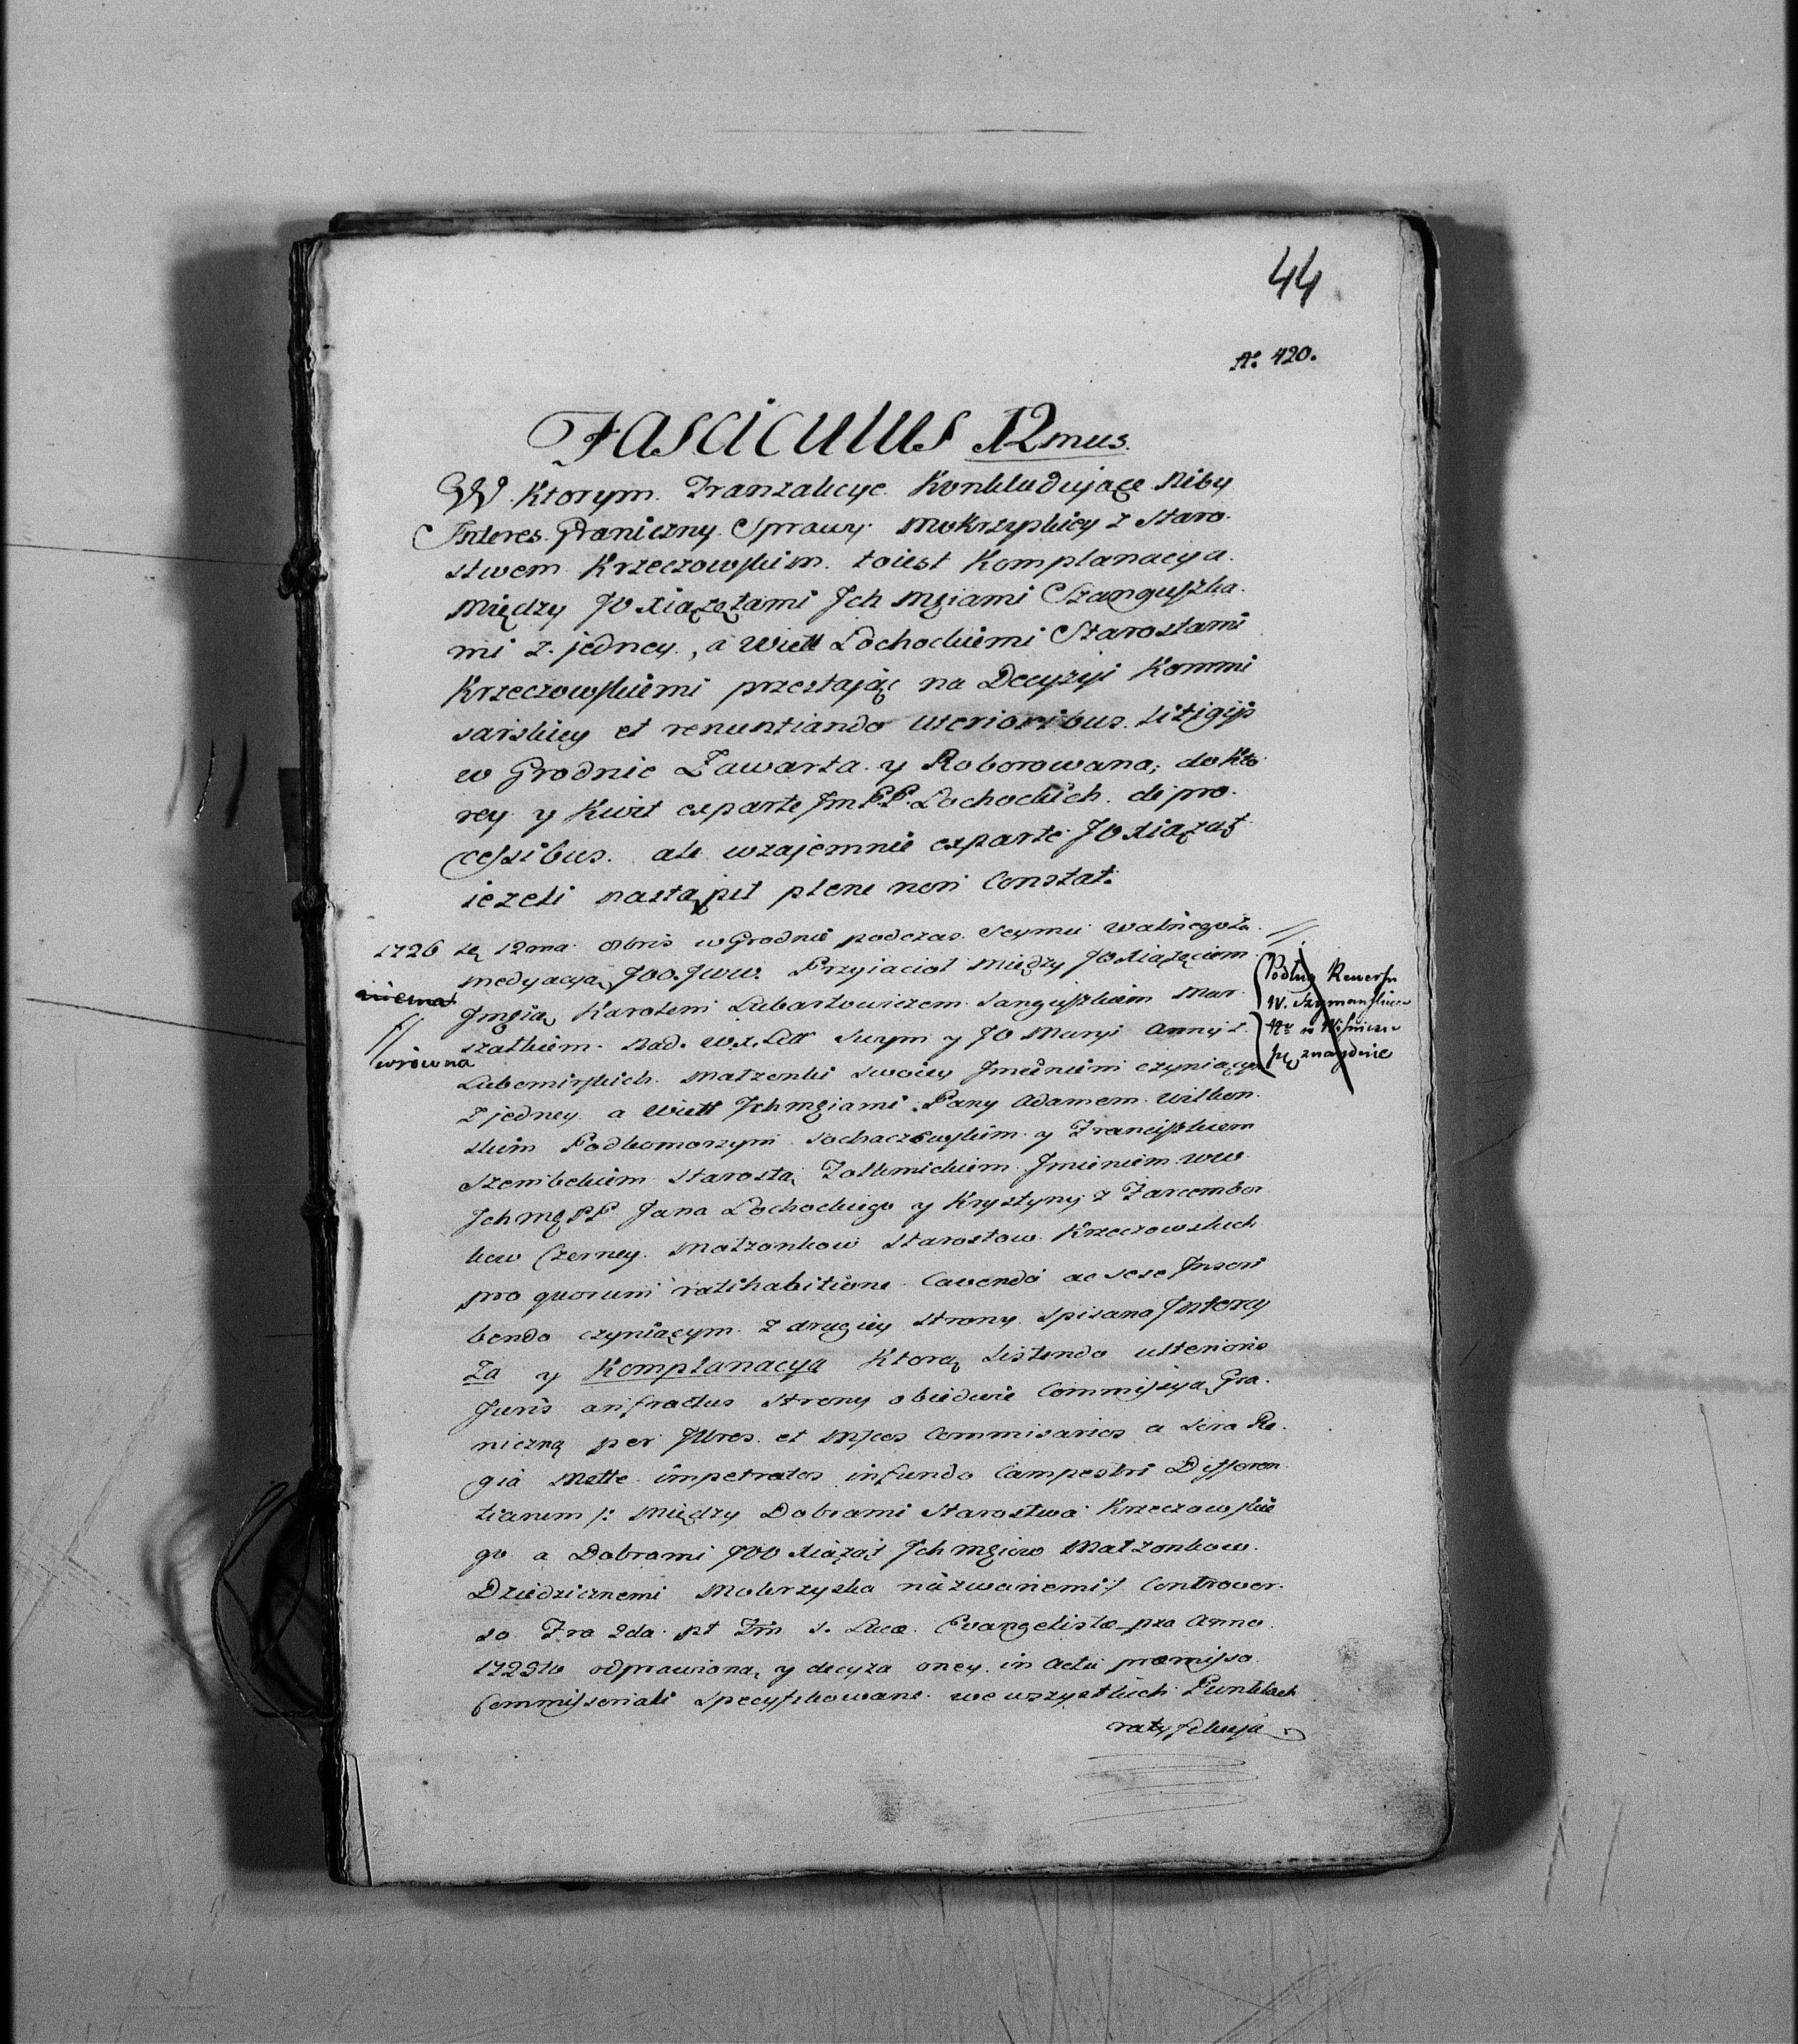 44
No. 420.
Fasciculus 12mus.
W. Ktorym. Tranzakcye. Konkludujące Niby
Interes. Graniczny. Sprawy. Mokrzyskiey z Staro.
stwem Krzeczowskim. toiest Komplanacya.
Między JO Xiążętami Ich Mgiami Szanguszka.
mi z. jedney., a Wiell Łochockiemi Starostami
Krzeczowskiemi przestając na Decyzyi Kommi
sarskiey et renuntiando ulterioribus. Litigijs
w Grodnie Zawarta. y Roborowana; do kto
rey y Kwit exparte Jm PP. Łochockich. de pro.
cessibus. ale wzajemnie exparte JO Xiążąt
ieżeli nastąpił plene non Constat.
1726 12ma 8bris w Grodnie podczas. Seymu walnego
medyacyą JOO. JWW. Przyiacioł między JO Xiążęciem
Jmgią Karolem Lubartowiczem. Sanguszkiem Mar.
szałkiem. Nad. W.X. Litt Swym y JO Maryi Anny z.
Lubomirskich. Małżonki swoiey Jmieniem czyniącym
Z jedney a Wiell Ichmgiami. Pany Adamem. Wilkon.
skim Podkomorzym Sochaczewskim. y Franciszkiem
Szembekiem Starostą Tolkmickiem. Jmieniem WW
Ichmg PP Jana Łochockiego y Krystyny z Tarcembor
kow Czerney. Małżonkow Starostow. Krzeczowskich
pro quorum ratihabitione. Cavendo ac sese Inscri
bendo czyniącym. z drugiey strony. spisana Intercy
za y Komplanacya Ktorą sistendo ulterioris
Juris anfractus strony obiedwie Commissyą Gra.
niczną per Illres. et Mfcos Commisarios a Sera Re.
gia Mtte. impetratos in fundo Campestri Differen
tiarum /: Między Dobrami Starostwa Krzeczowskie
go a Dobrami JOO Xiążąt Ich Mgiow Małżonkow.
Dziedzicznemi Mokrzyska nazwanemi :/ Controver.
so Fra 2da. pt Fm S. Lucæ. Evangelistæ pro Anno.
1725to odprawioną y decyzą oney. in Actu præmisso
Commissoriali Specyfikowane. we wszystkich Punktach
ratyfikują
niema
wrowna
Podług Rewersu
W. Szymanskiego
w Wiśniczu
się znayduie